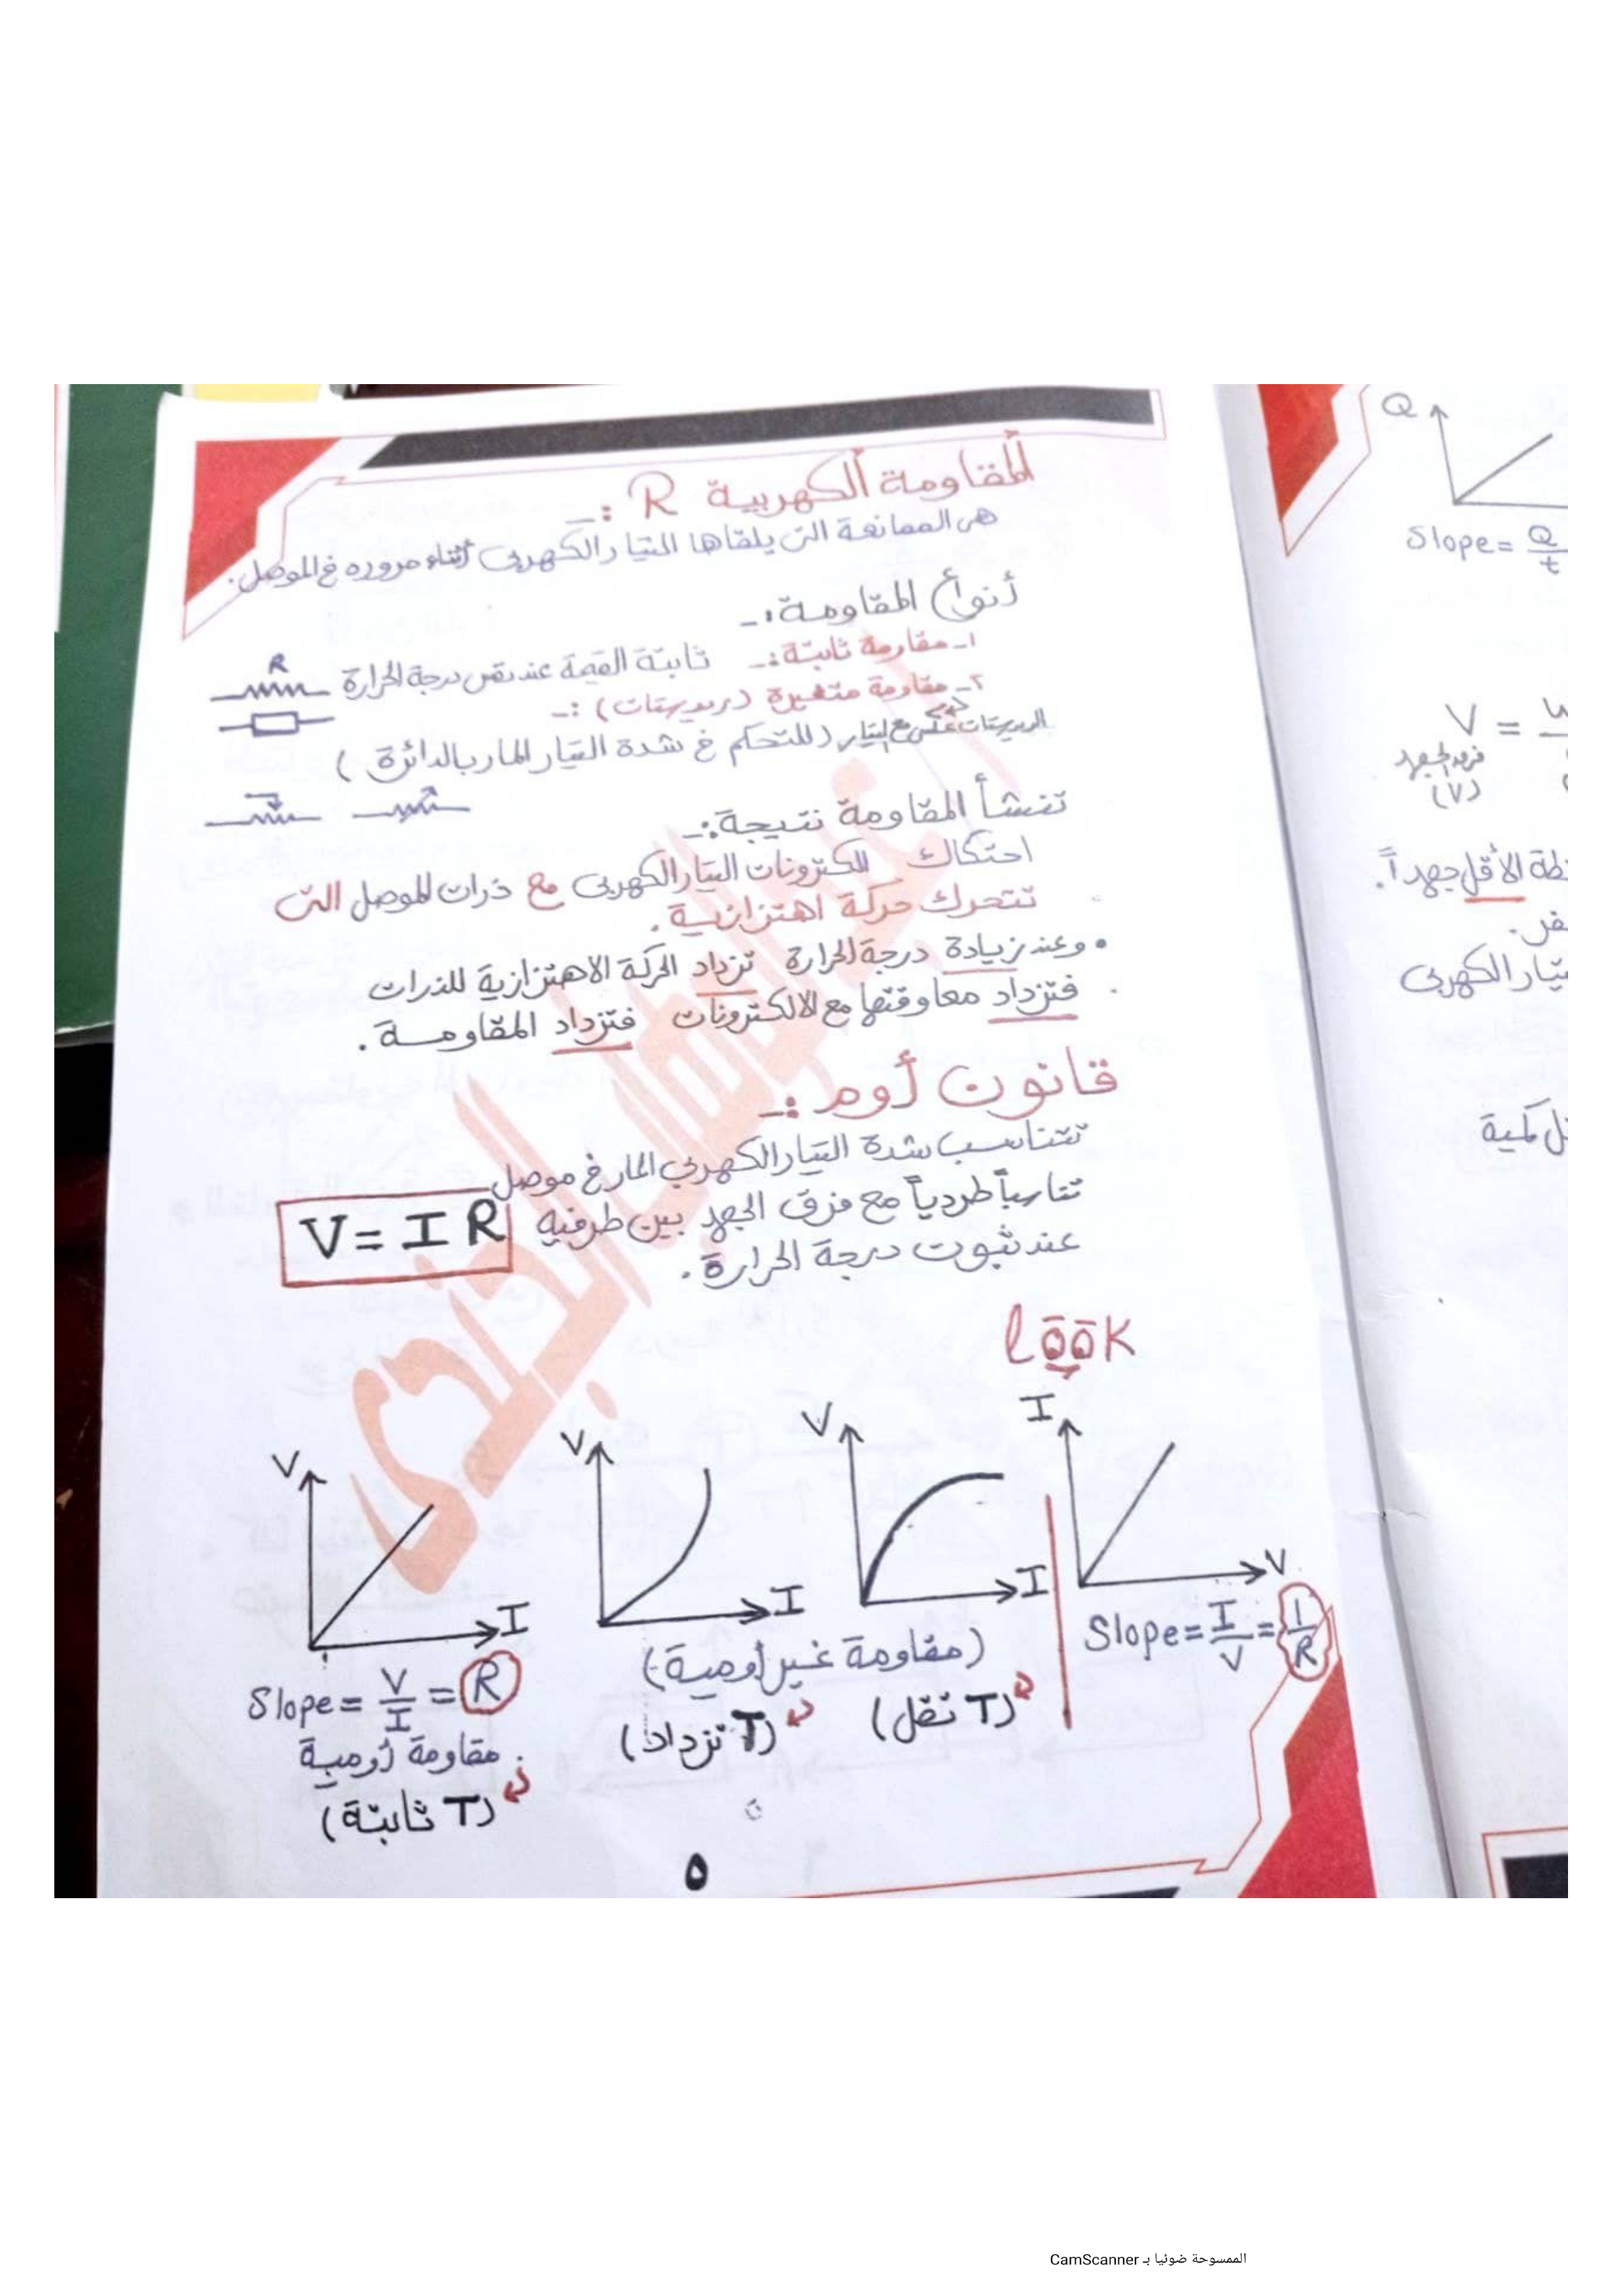 المقاومة الكهربية R :ـ
هى الممانعة التى يلقاها التيار الكهربى أثناء مروره فى الموصل.
أنواع المقاومة:ـ
١ـ مقاومة ثابتة:ـ ثابتة القيمة عند نفس درجة الحرارة
R
٢ـ مقاومة متغيرة (ريوستات) :ـ
الريوستات عكس مع التيار (للتحكم فى شدة التيار المار بالدائرة)
تنشأ المقاومة نتيجة:ـ
احتكاك إلكترونات التيار الكهربى مع ذرات الموصل التى
تتحرك حركة اهتزازية.
• وعند زيادة درجة الحرارة تزداد الحركة الاهتزازية للذرات
فتزداد معاوقتها مع الالكترونات فتزداد المقاومة.
قانون أوم :ـ
تتناسب شدة التيار الكهربي المار فى موصل
تناسباً طردياً مع فرق الجهد بين طرفيه
V = I R
عند ثبوت درجة الحرارة.
look
I
V
Slope = I/V = 1/R
V
I
V
I
(مقاومة غير أومية)
(T تقل)
(T تزداد)
V
I
Slope = V/I = R
مقاومة أومية
(T ثابتة)
٥
Q
Slope = Q/t
V =
فرق الجهد
(V)
الأقل جهداً.
الكهربى
كمية
الممسوحة ضوئيا بـ CamScanner